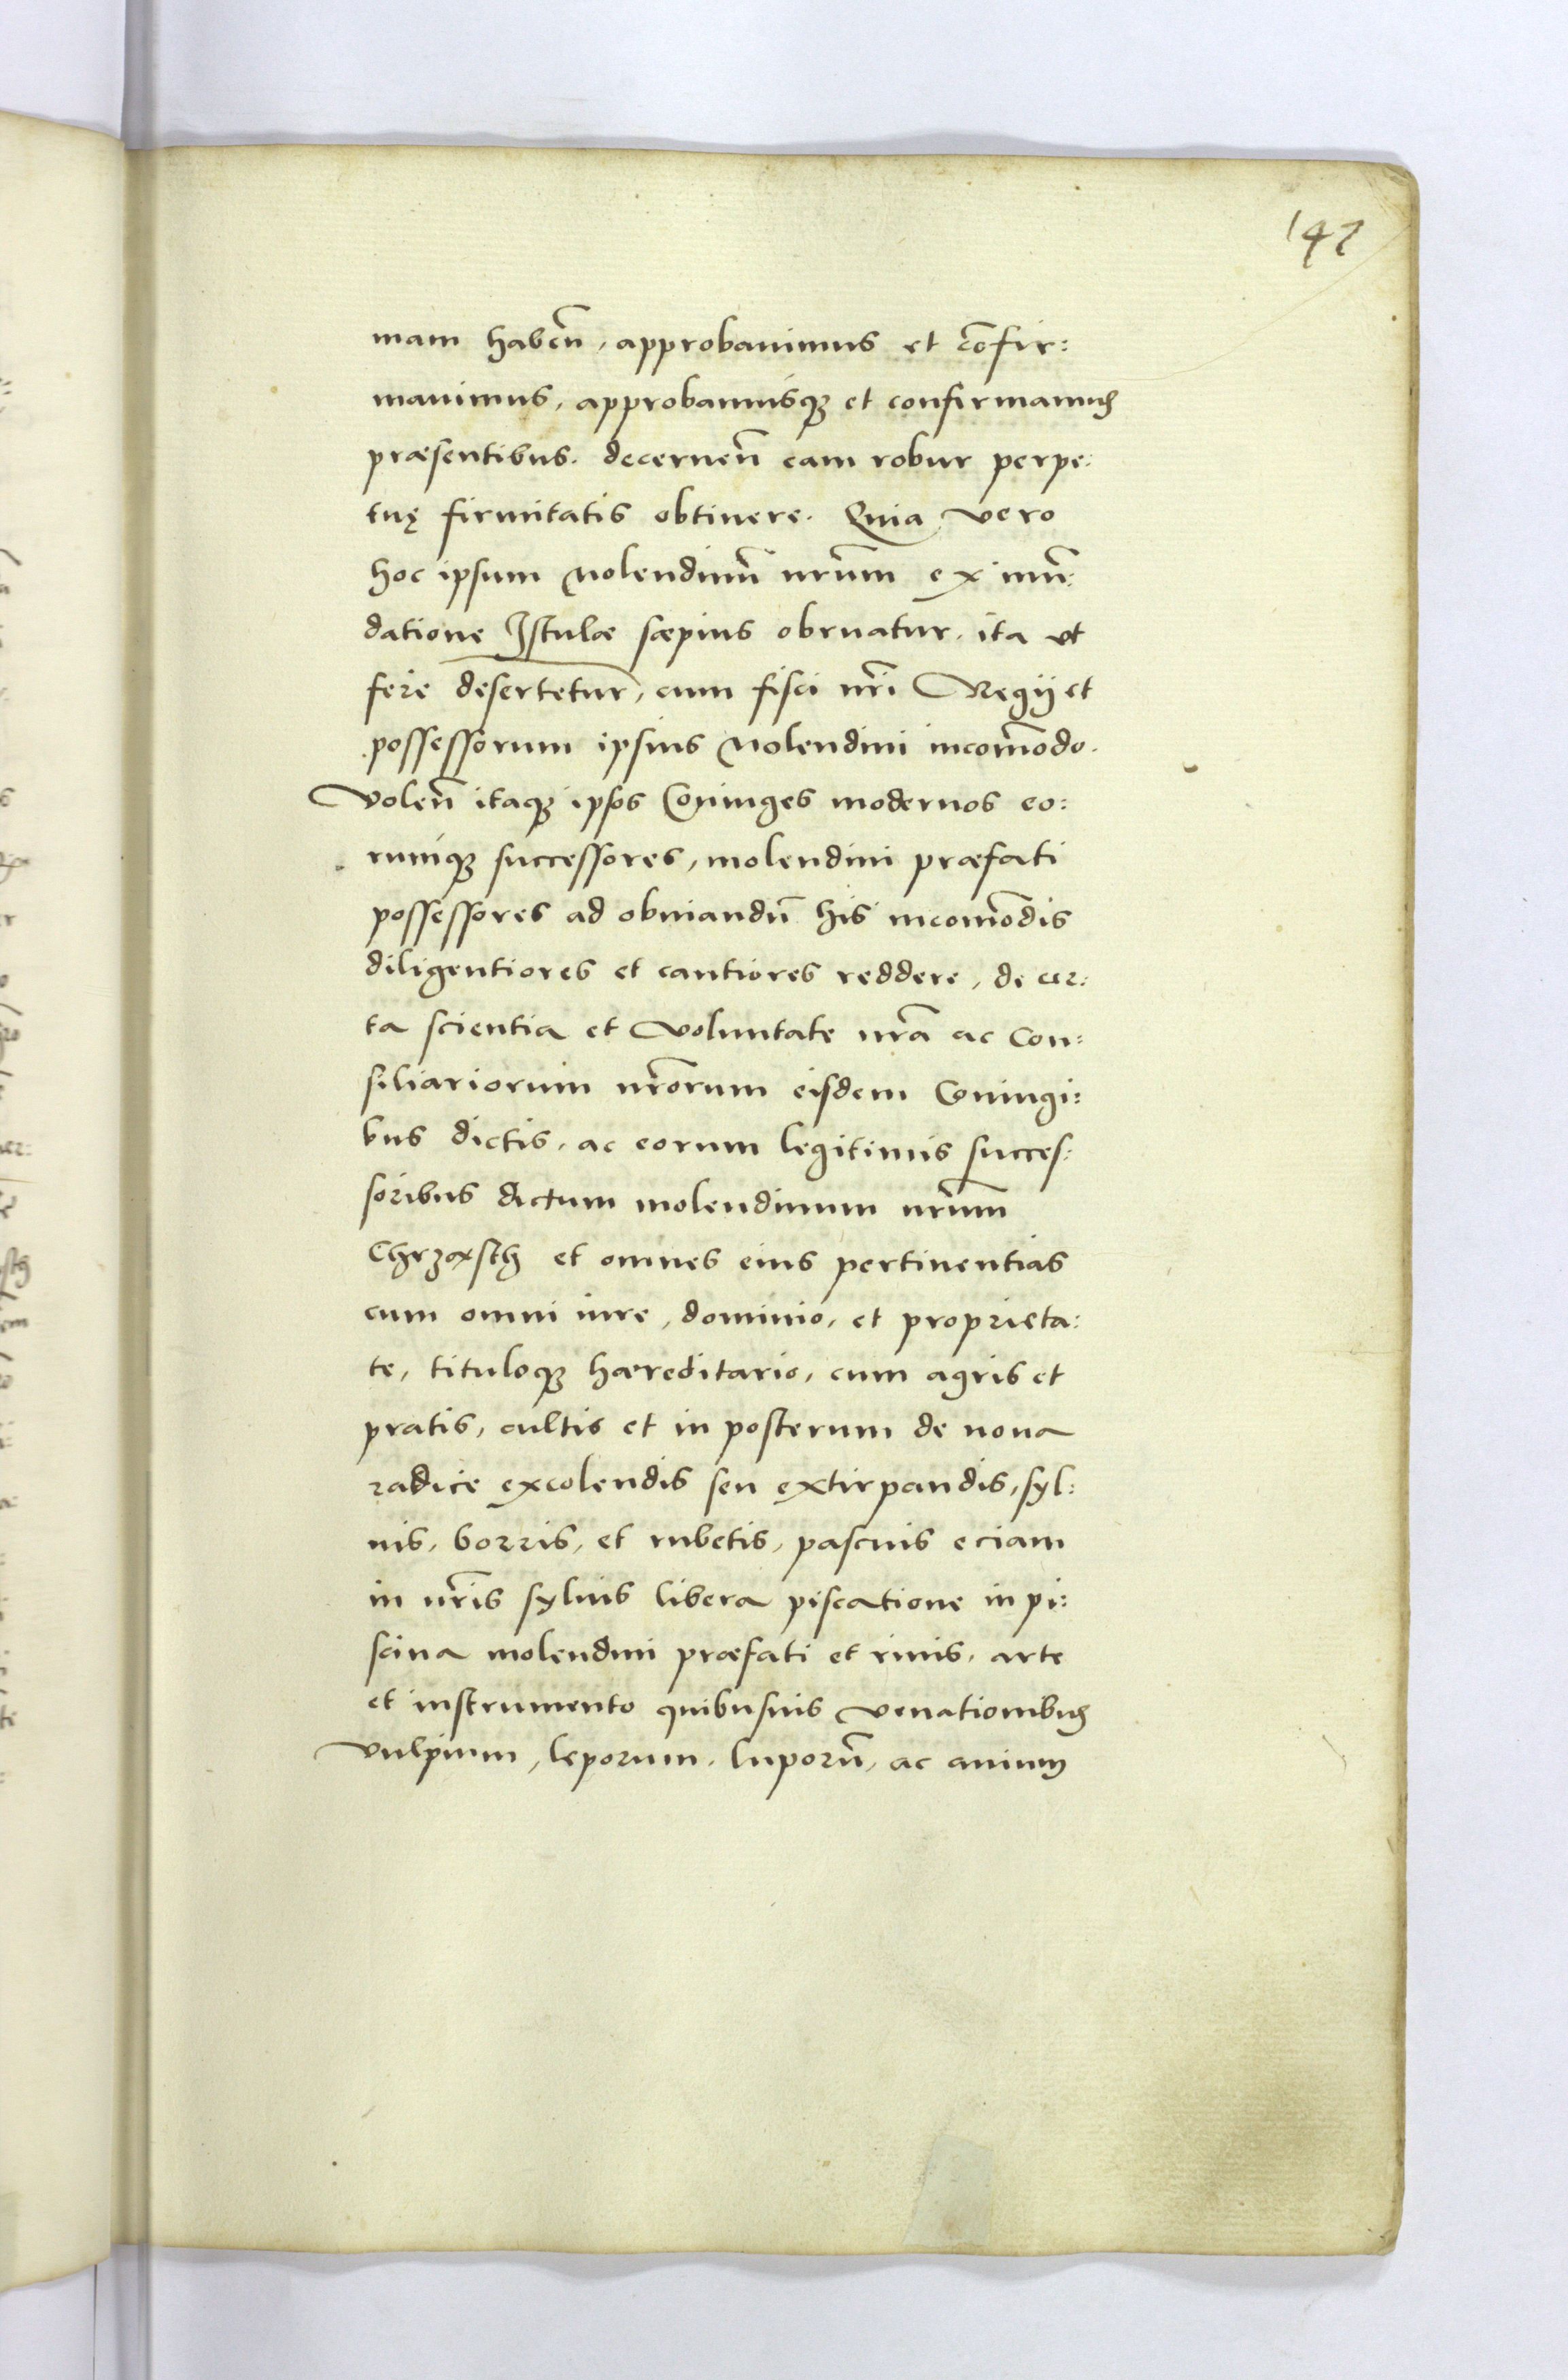 147
mam habeñ, approbauimus et cõfir:
mauimus, approbamusqꝫ et confirmamus
præsentibus. decerneñ eam robur perpe:
tuę firmitatis obtinere. Quia vero
hoc ipsum Molendinũ nrũm ex inũ:
datione Istulæ sæpius obruatur, ita vt
fere desertetur, cum fisci nrĩ Regij et
possessorum ipsius Molendini incom̃odo.
Voleñ itaqꝫ ipsos Coniuges modernos eo:
rumqꝫ successores, molendini præfati
possessores ad obuiandũ his incom̃odis
diligentiores et cautiores reddere, de cer:
ta scientia et voluntate nrã ac Con:
siliariorum nrõrum eisdem Coniugi:
bus dictis, ac eorum legitimis succes:
soribus dictum molendinum nrũm
Chrząsth et omnes eius pertinentias
cum omni iure, dominio, et proprieta:
te, tituloqꝫ hæreditario, cum agris et
pratis, cultis et in posterum de noua
radice excolendis seu extirpandis, syl:
uis, borris, et rubetis, pascuis eciam
in nrĩs syluis libera piscatione in pi:
scina molendini præfati et riuis, arte
et instrumento quibusuis venationibus
Vulpium, leporum, luporũ, ac auium